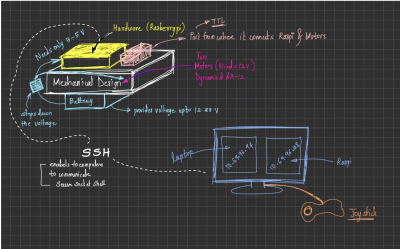 TTL
Hardware (Rasberrypi)
Needs only 4-5V
Port from where it connects Raspi & Motors
Two
Motors (Need = 12V
Dynamixel AX-12
Mechanical Design
Battery
provides voltage upto 12
steps down
the voltage
SSH
enables to computers
to communicate
Secure Socket Shell
Laptop
Raspi
Joystick